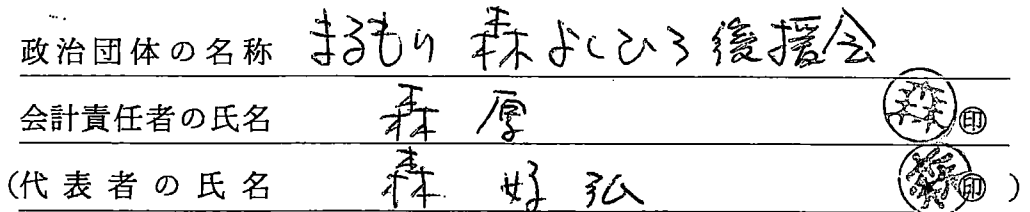 政治団体の名称 まるもり 森よしひろ後援会
会計責任者の氏名 森 厚 ㊞
(代表者の氏名 森 好弘 ㊞)